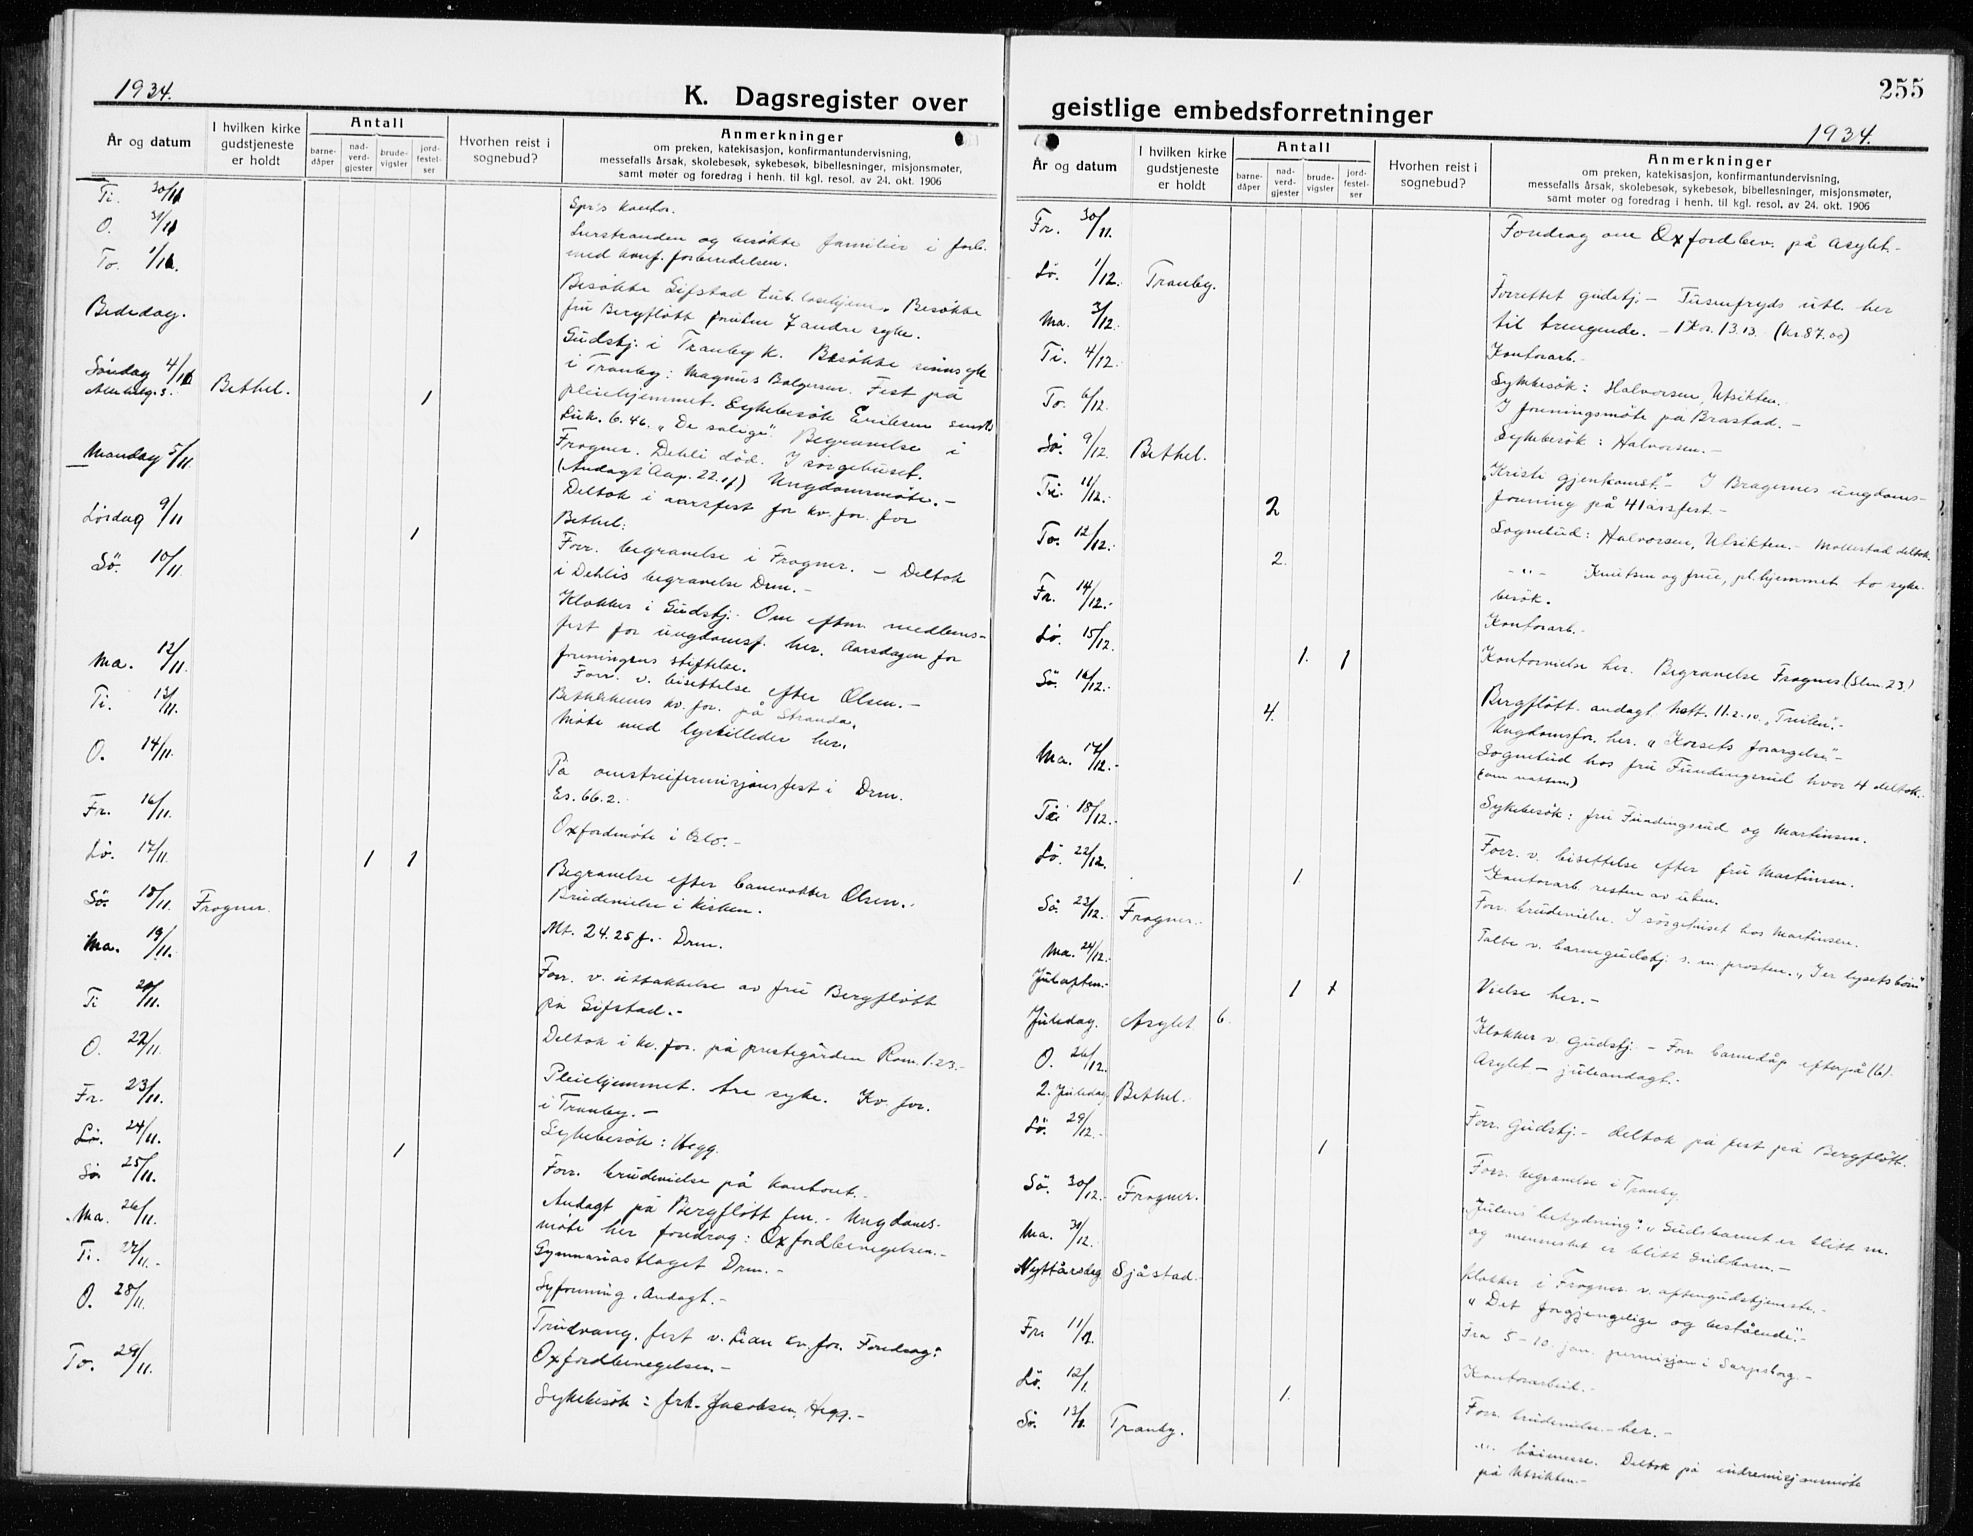 255
1934.
K. Dagsregister over
geistlige embedsforretninger
1934.
År og datum
I hvilken kirke gudstjeneste er holdt
Antall
barne-dåper
nad-verd-gjester
brude-vigsler
jord-festel-ser
Hvorhen reist i sognebud?
Anmerkninger
om preken, katekisasjon, konfirmantundervisning,
messefalls årsak, skolebesøk, sykebesøk, bibellesninger, misjonsmøter,
samt møter og foredrag i henh. til kgl. resol. av 24. okt. 1906
Ti. 30/11
O. 31/11
To. 1/11.
Bededag.
Söndag 4/11
Bethel. 1
Mandag 5/11.
Lördag 9/11
1
Sö. 10/11.
Ma. 12/11.
Ti. 13/11.
O. 14/11.
Fr. 16/11.
Lö. 17/11. 1 1
Sö. 18/11. Frogner.
Ma. 19/11.
Ti 20/11.
O. 22/11.
Fr. 23/11.
Lö. 24/11.
1
Sö. 25/11.
Ma. 26/11.
Ti. 27/11.-
O. 28/11.
To. 29/11.
kontor.
og besökte familier i forb.
med konf. forberedelsen.
Besökte Sifstad Besökte
fru Bergflött foruten 7 andre syke.
Gudstj. i Tranby K. Besökte sinnsyk
i Tranby: Magnus Bolgersen. Fest på
pleiehjemmet. Sykebesök Eriksen
Luk. 6. 46. "De salige". Begravelse i
Frogner. Dehli död. I sörgehuset.
(Andagt Aap. 22. ) Ungdomsmöte.-
Deltok i aarsfest for kv. for. for
Bethel.
Forr. begravelse i Frogner. - Deltok
i Dehlis begravelse Drm.-
Klokker i Gudstj. Om eftm. medlems-
fest for ungdomsf. her. Aarsdagen for
foreningens stiftelse.
Forr. v. bisettelse efter Olsen.-
kv. for. på Stranda.
Möte med lysbilleder her.
På omstreifermisjonsfest i Drm.
Es. 66. 2.
Oxfordmöte i Oslo.-
Begravelse efter banevokter Olsen.
Brudevielse i kirken.
Mt. 24. 25 f.- Drm.
Forr. v. uttakkelse av fru Bergflött
på Sifstad.-
Deltok i kv. for. på prestegården Rom. 1. 23.-
Pleiehjemmet. tre syke. Kv. for.
i Tranby.-
Sykebesök: Hegg.
Forr. brudevielse på kontoret.-
Andagt på Bergflött fm.- Ungdoms-
möte her foredrag: Oxfordbevegelsen.-
Gymnasiastlaget Drm.-
Syforening. Andagt.-
Trudvang, fest v. Lian kv. for. Foredrag:
Oxfordbevegelsen.-
Sykebesök: frk. Jacobsen, Hegg.-
År og datum
I hvilken kirke gudstjeneste er holdt
Antall
barne-dåper
nad-verd-gjester
brude-vigsler
jord-festel-ser
Hvorhen reist i sognebud?
Anmerkninger
om preken, katekisasjon, konfirmantundervisning,
messefalls årsak, skolebesøk, sykebesøk, bibellesninger, misjonsmøter,
samt møter og foredrag i henh. til kgl. resol. av 24. okt. 1906
Fr. 30/11.
Lö. 1/12. Tranby.
Ma. 3/12.
Ti. 4/12.
To. 6/12.
Sö. 9/12. Bethel.
Ti. 11/12. 2
To. 12/12. 2.
Fr. 14/12.-
Lö. 15/12. 1. 1
Sö. 16/12.
4.
Ma. 17/12.-
Ti 18/12.-
Lö. 22/12. 1
Sö. 23/12. Frogner.
Ma. 24/12.
Juleaften.- 1 1
Juledag. Asylet 6.
O. 26/12.
2. Juledag Bethel.
Lö. 29/12.- 1
Sö. 30/12.- Frogner.
Ma. 31/12.
Nyttårsdag Sjåstad.
Fr. 11/1.
Lö. 12/1. 1.
Sö. 13/1. Tranby.
Foredrag om Oxfordbev. på Asylet.-
Forrettet gudstj.- Tusenfryds utl. her
til trengende.- 1 Kor. 13. 13. (Kr 87.00)
Kontorarb.-
Sykebesök: Halvorsen, Utsikten.
I foreningsmöte på Brastad.-
Sykebesök: Halvorsen.-
"Kristi gjenkomst".- I Bragernes ungdoms-
forening på 41 årsfest.-
Sognebud: Halvorsen, Utsikten.- Mollestad deltok.
- " - Knutsen og frue, pl. hjemmet to syke-
besök.
Kontorarb.-
Kontorvielse her. Begravelse Frogner (Slm. 23.)
Bergflött. andagt Matt. 11. 2. 10. "Tvilen".-
Ungdomsfor. her. "Korsets forargelse"-
Sognebud hos fru Fundingsrud hvor 4 deltok.
Sykebesök: fru Fundingsrud og Martinsen.
Forr. v. bisettelse efter fru Martinsen.
Kontorarb. resten av uken.
Forr. brudevielse. I sörgehuset hos Martinsen.
Talte v. barnegudstj. s. m. prosten. "I er lysets börn"
Vielse her.-
Klokker v. Gudstj.- Forr. barnedåp efterpå (6).
Asylet - juleandagt.-
Forr. Gudstj.- deltok på fest på Bergflött.
Forr. begravelse i Tranby.
"Julens betydning": "Gudsbarnet er blitt m.
og mennesket er blitt Gudsbarn.-
Klokker i Frogner v. aftengudstjeneste.-
"Det forgjengelige og bestående".-
Fra 5-10. jan. permisjon i Sarpsborg.-
Kontorarbeid.-
Forr. brudevielse - her.-
- " - höimesse. Deltok på indremisjonsmöte
på Utsikten.-